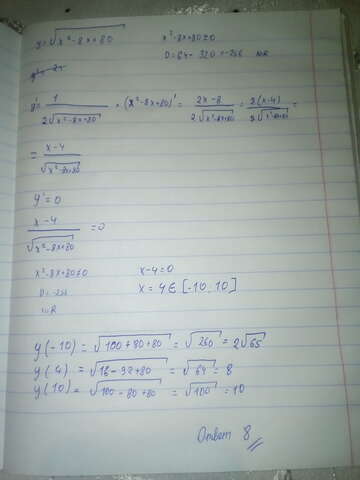 y=√(x²-8x+80)   x²-8x+80≥0
D=64-320=-256 xεR
y'= 1/(2√(x²-8x+80)) · (x²-8x+80)' = (2x-8)/(2√(x²-8x+80)) = 2(x-4)/(2√(x²-8x+80)) =
= (x-4)/√(x²-8x+80)
y'=0
(x-4)/√(x²-8x+80) =0
x²-8x+80≠0   x-4=0
x=4∈[-10;10]
y(-10)=√(100+80+80)=√260=2√65
y(4)=√(16-32+80)=√64=8
y(10)=√(100-80+80)=√100=10
Ответ 8